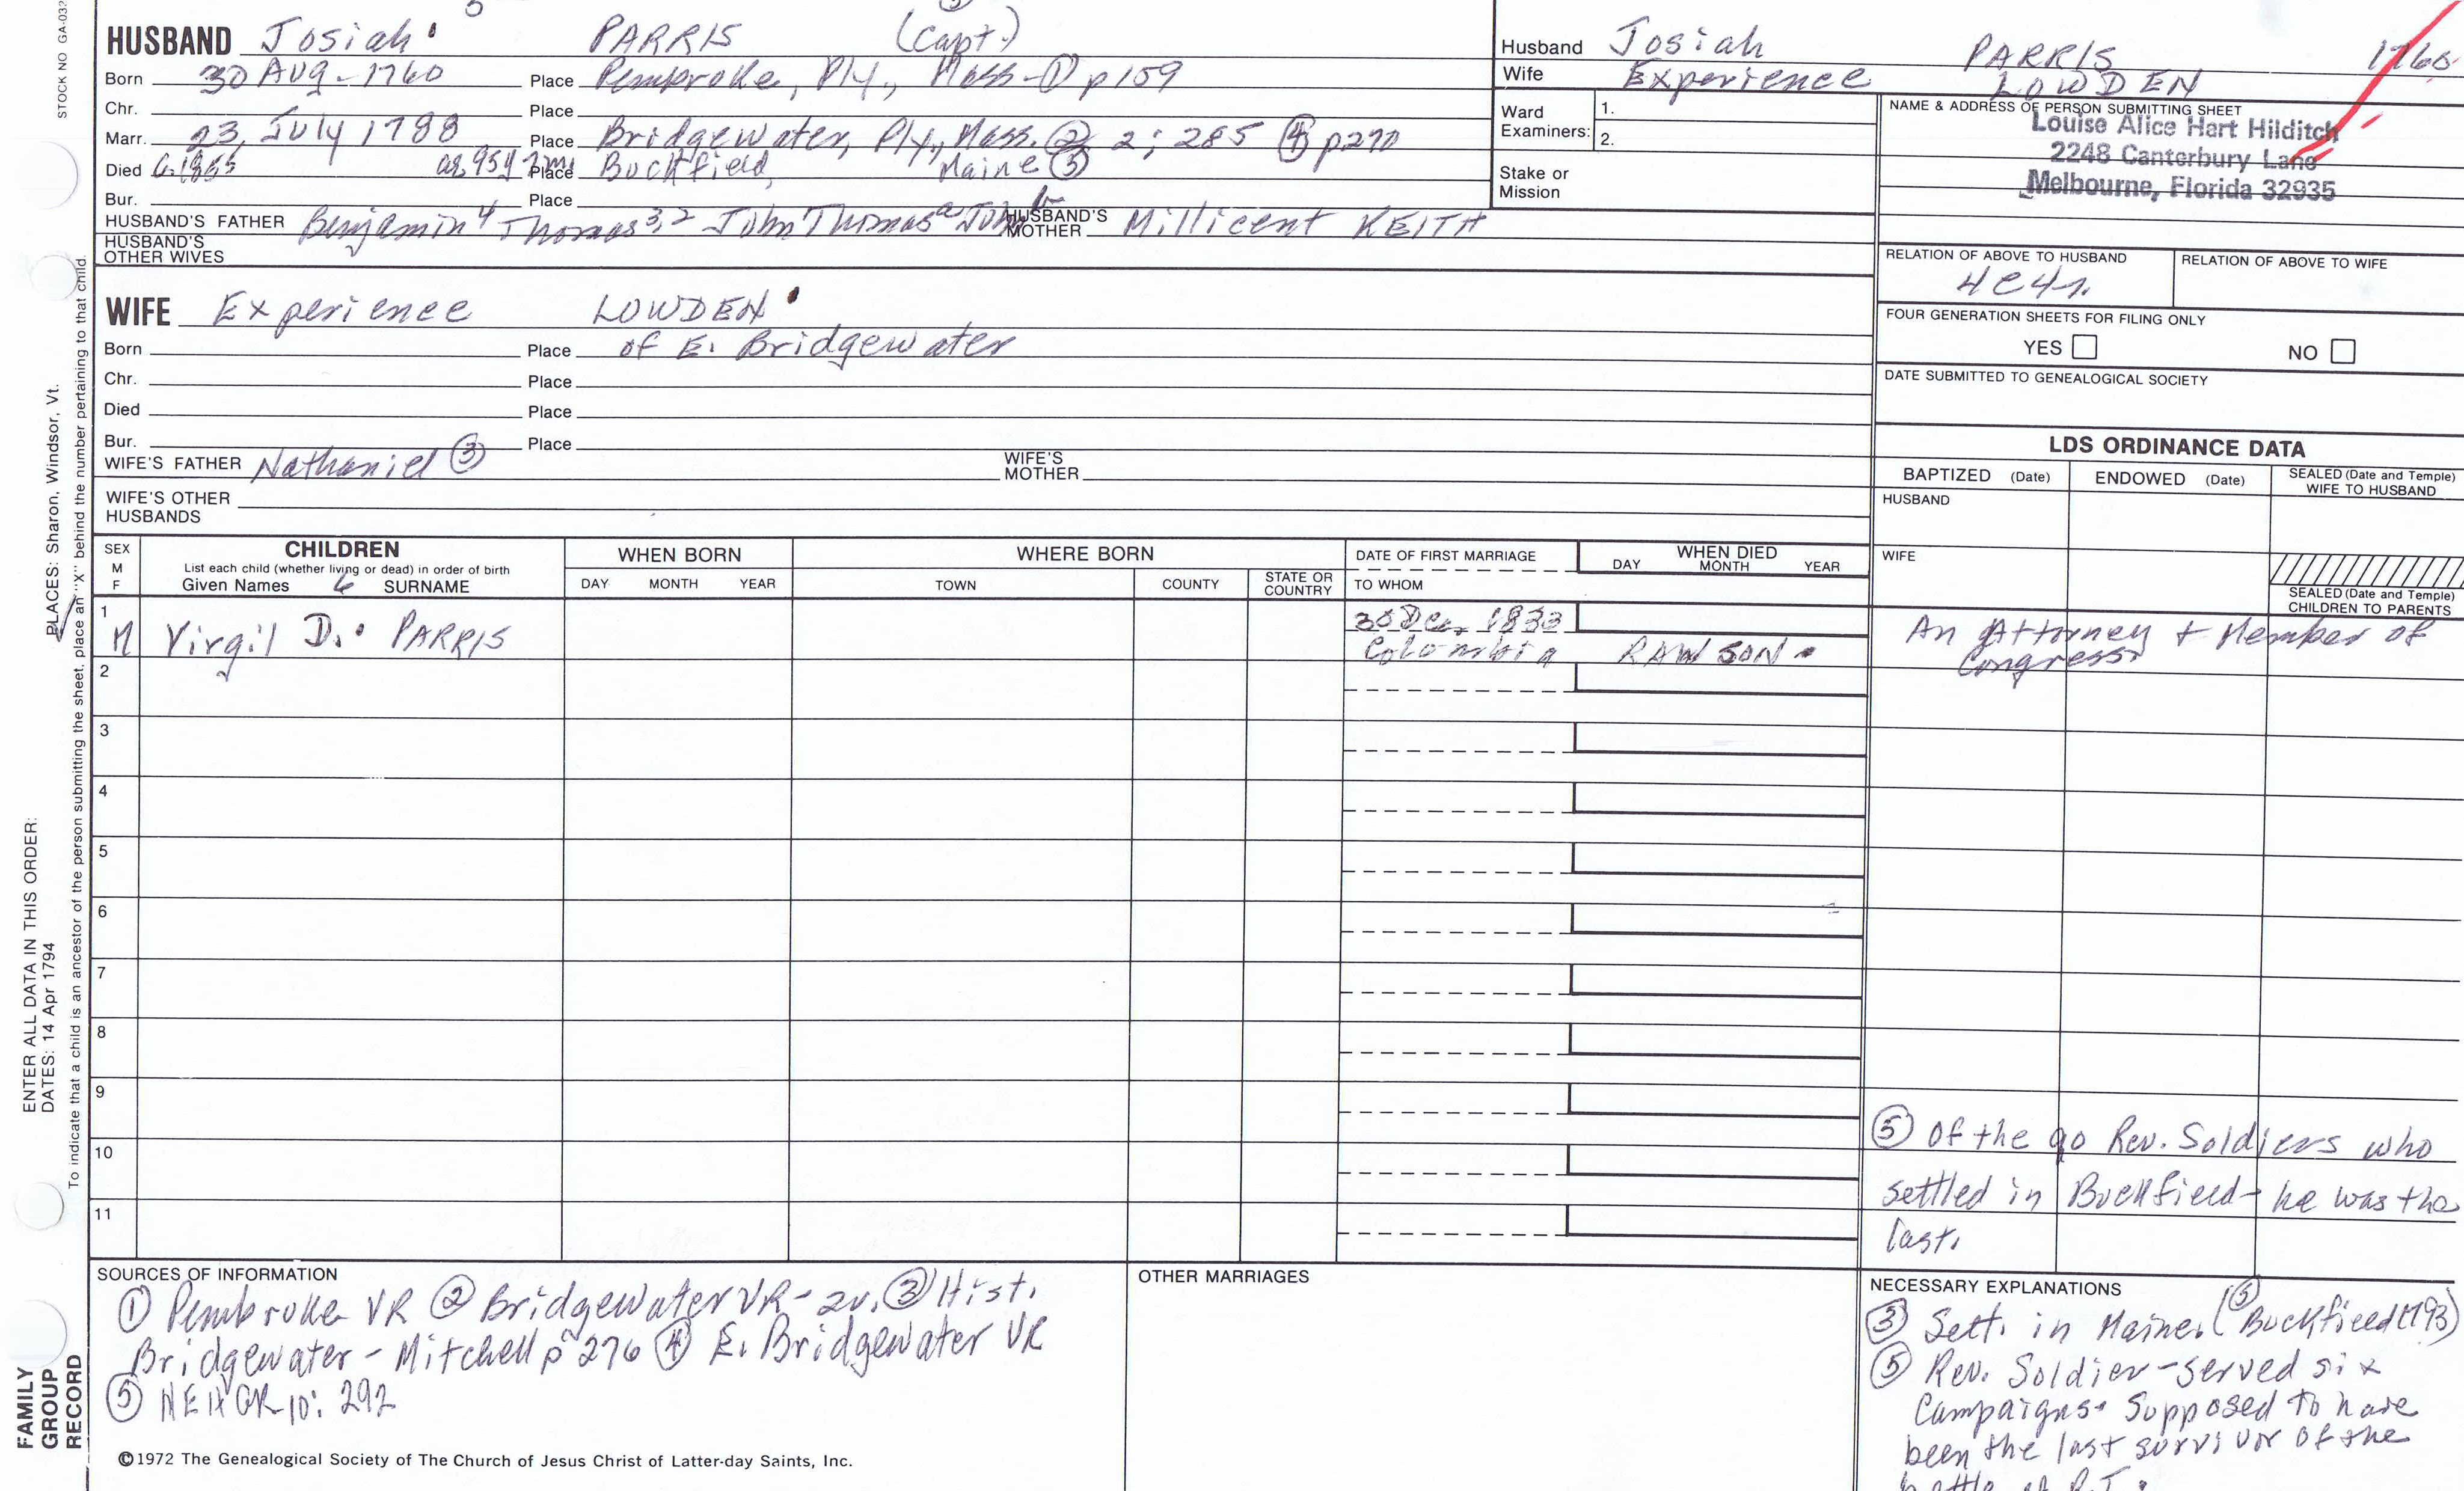 STOCK NO GA-032
5 (3)
HUSBAND Josiah PARRIS (Capt.)
Born 30 AUG - 1760 Place Pembroke, Ply., Mass - ① p 159
Chr. Place
Marr. 23, July 1788 Place Bridgewater, Ply., Mass. ② 2; 285 ④ p270
Died c. 1855 ae 95y 2m Place Buckfield, Maine ⑤
Bur. Place
HUSBAND'S FATHER Benjamin 4 Thomas 3,2 John Thomas a John b HUSBAND'S MOTHER Millicent KEITH
HUSBAND'S OTHER WIVES
WIFE Experience LOWDEN
Born Place of E. Bridgewater
Chr. Place
Died Place
Bur. Place
WIFE'S FATHER Nathaniel ③ WIFE'S MOTHER
WIFE'S OTHER HUSBANDS
Husband Josiah PARRIS 1760
Wife Experience LOWDEN
Ward Examiners: 1.
2.
Stake or Mission
NAME & ADDRESS OF PERSON SUBMITTING SHEET
Louise Alice Hart Hilditch
2248 Canterbury Lane
Melbourne, Florida 32935
RELATION OF ABOVE TO HUSBAND RELATION OF ABOVE TO WIFE
4c4r.
FOUR GENERATION SHEETS FOR FILING ONLY
YES NO
DATE SUBMITTED TO GENEALOGICAL SOCIETY
LDS ORDINANCE DATA
BAPTIZED (Date) ENDOWED (Date) SEALED (Date and Temple) WIFE TO HUSBAND
HUSBAND
WIFE
SEALED (Date and Temple) CHILDREN TO PARENTS
SEX M F
CHILDREN
List each child (whether living or dead) in order of birth
Given Names 6 SURNAME
WHEN BORN
DAY MONTH YEAR
WHERE BORN
TOWN COUNTY STATE OR COUNTRY
DATE OF FIRST MARRIAGE
TO WHOM
WHEN DIED
DAY MONTH YEAR
1 M Virgil D. PARRIS 30 Dec. 1833
Columbia RAWSON
An Attorney + Member of
Congress
2
3
4
5
6
7
8
9
10
11
⑤ Of the 90 Rev. Soldiers who
settled in Buckfield - he was the
last.
SOURCES OF INFORMATION
① Pembroke VR ② Bridgewater VR - 2v. ③ Hist.
Bridgewater - Mitchell p 276 ④ E. Bridgewater VR
⑤ NEHGR 10: 292
OTHER MARRIAGES
NECESSARY EXPLANATIONS
③ Sett. in Maine. (⑤ Buckfield 1793)
⑤ Rev. Soldier - served six
Campaigns. Supposed to have
been the last survivor of the
battle of R.I.
©1972 The Genealogical Society of The Church of Jesus Christ of Latter-day Saints, Inc.
ENTER ALL DATA IN THIS ORDER:
DATES: 14 Apr 1794 PLACES: Sharon, Windsor, Vt.
To indicate that a child is an ancestor of the person submitting the sheet, place an "X" behind the number pertaining to that child.
FAMILY
GROUP
RECORD